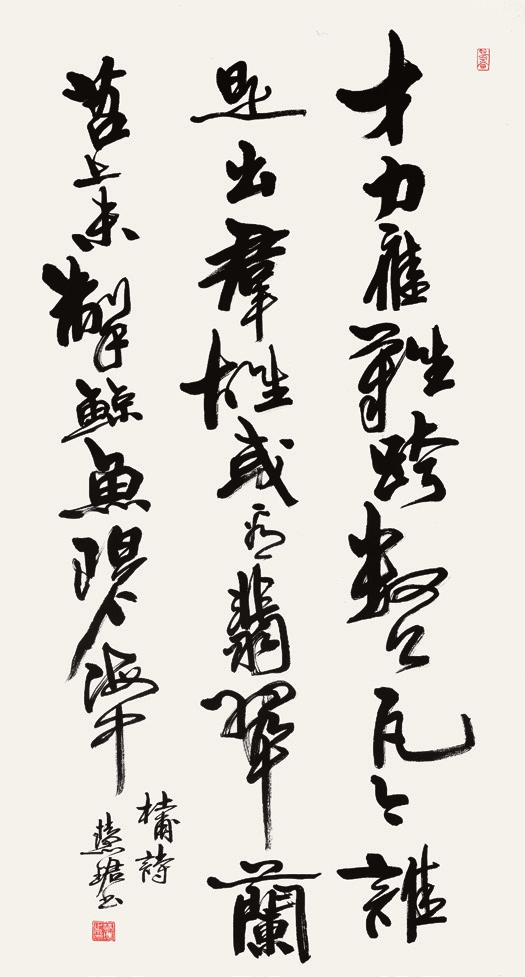 才力應難跨數公凡今誰
是出羣雄或看翡翠蘭
苕上未掣鯨魚碧海中
杜甫詩
慧珺書